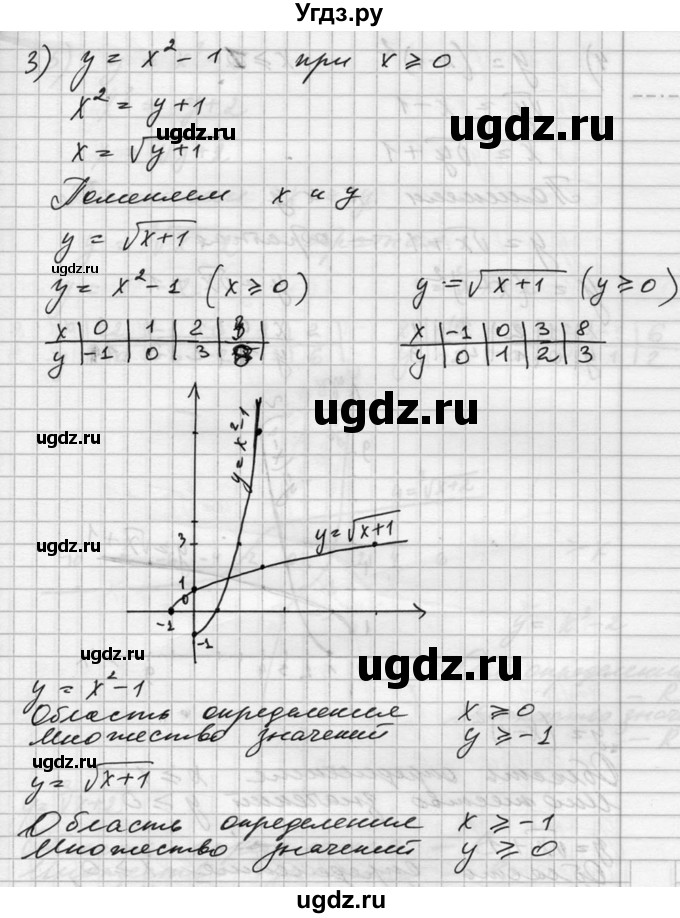 Угдз.ру
3) y = x² - 1 при x ≥ 0
x² = y + 1
ugdz.ru ugdz.ru
x = √y+1
Поменяем x и y
y = √x+1
ugdz.ru
y = x² - 1 (x ≥ 0) y = √x+1 (y ≥ 0)
x | 0 | 1 | 2 | 3 | x | -1 | 0 | 3 | 8
y | -1 | 0 | 3 | 8 | y | 0 | 1 | 2 | 3
ugdz.ru
ugdz.ru
y = x² - 1
y = √x+1
3
1
0
-1 -1
ugdz.ru
y = x² - 1
Область определения x ≥ 0
ugdz.ru
Множество значений y ≥ -1
y = √x+1
ugdz.ru
Область определения x ≥ -1
Множество значений y ≥ 0
ugdz.ru
ugdz.ru